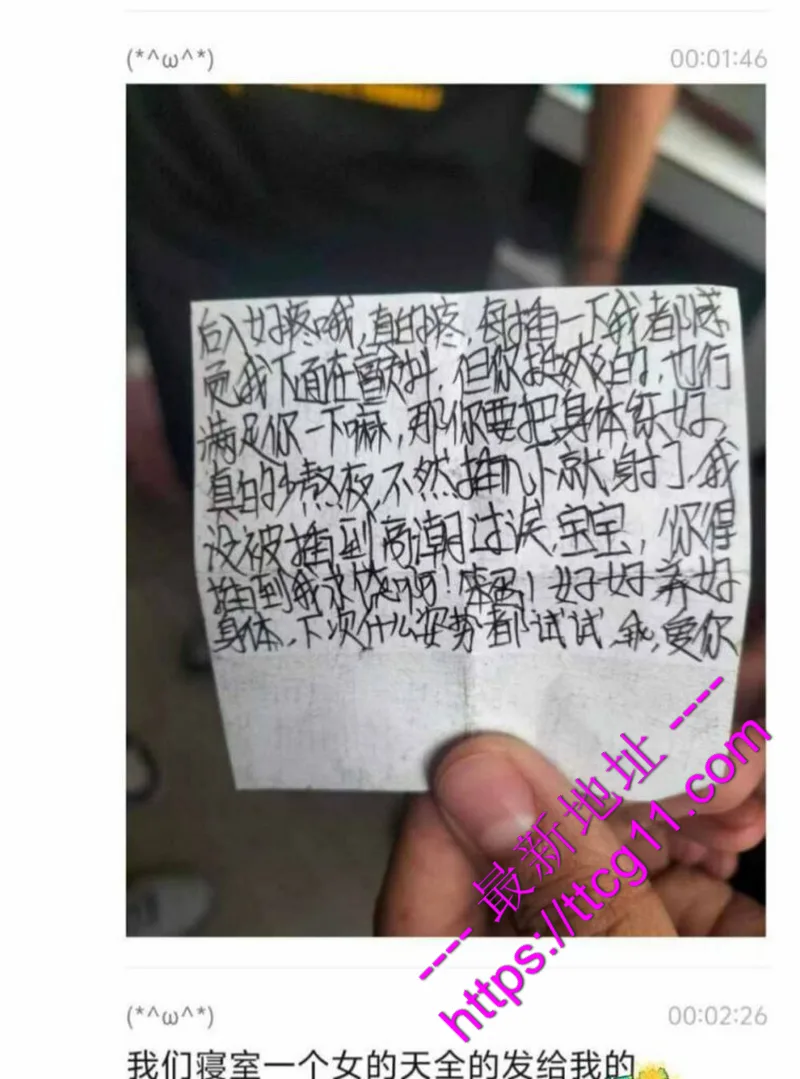 (*^ω^*)
00:01:46
后入好疼哦,真的疼,每插一下我都感
觉我下面在颤抖,但你挺爽的,也行
满足你一下嘛,那你要把身体练好,
真的少熬夜,不然插几下就射了,我
没被插到高潮过诶,宝宝,你得
插到我求饶啊!笨蛋!好好养好
身体,下次什么姿势都试试,我爱你
---- 最新地址 ----
https://ttcg11.com
(*^ω^*)
00:02:26
我们寝室一个女的天全的发给我的